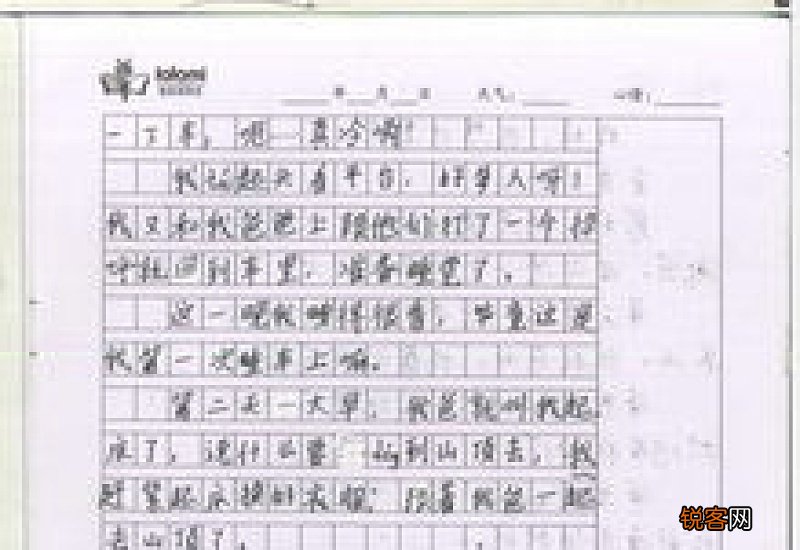 lalami
年 月 日 天气： 心情：
一下车，嗯——真冷啊！
我抬起头看平台，好多人呀！
我又和我爸爸上跟他们打了一个招
呼就回到车里，准备睡觉了。
这一晚我睡得很香，毕竟这是
我第一次睡车上嘛。
第二天一大早，我爸就叫我起
床了，说什么要到山顶去，我
赶紧起床换好衣服，跟着我爸一起
去山顶了。
锐客网